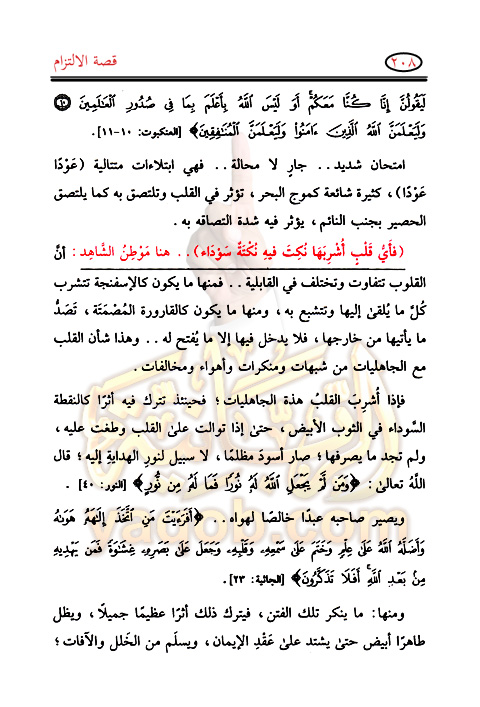 ٢٠٨
قصة الالتزام
لَيَقُولُنَّ إِنَّا كُنَّا مَعَكُمْ أَوَ لَيْسَ اللَّهُ بِأَعْلَمَ بِمَا فِي صُدُورِ الْعَالَمِينَ ۝١٠
وَلَيَعْلَمَنَّ اللَّهُ الَّذِينَ ءَامَنُوا وَلَيَعْلَمَنَّ الْمُنَافِقِينَ﴾ [العنكبوت: ١٠-١١].
امتحان شديد.. جارٍ لا محالة.. فهي ابتلاءات متتالية (عَوْدًا
عَوْدًا)، كثيرة شائعة كموج البحر، تؤثر في القلب وتلتصق به كما يلتصق
الحصير بجنب النائم، يؤثر فيه شدة التصاقه به.
(فَأَيُّ قَلْبٍ أُشْرِبَهَا نُكِتَ فيهِ نُكْتَةٌ سَوْدَاء).. هنا مَوْطِنُ الشَّاهِد: أنَّ
القلوب تتفاوت وتختلف في القابلية.. فمنها ما يكون كالإسفنجة تتشرب
كُلَّ ما يُلقىٰ إليها وتتشبع به، ومنها ما يكون كالقارورة المُصْمَتَة، تَصَدُّ
ما يأتيها من خارجها، فلا يدخل فيها إلا ما يُفتح له.. وهذا شأن القلب
مع الجاهليات من شبهات ومنكرات وأهواء ومخالفات.
فإذا أُشرِبَ القلبُ هذة الجاهليات؛ فحينئذ تترك فيه أثرًا كالنقطة
السَّوداء في الثوب الأبيض، حتىٰ إذا توالت علىٰ القلب وطغت عليه،
ولم تجد ما يصرفها؛ صار أسودَ مظلمًا، لا سبيل لنورِ الهدايةِ إليه؛ قال
اللَّهُ تعالىٰ: ﴿وَمَن لَّمْ يَجْعَلِ اللَّهُ لَهُ نُورًا فَمَا لَهُ مِن نُّورٍ﴾ [النور: ٤٠].
ويصير صاحبه عبدًا خالصًا لهواه.. ﴿أَفَرَءَيْتَ مَنِ اتَّخَذَ إِلَٰهَهُ هَوَاهُ
وَأَضَلَّهُ اللَّهُ عَلَىٰ عِلْمٍ وَخَتَمَ عَلَىٰ سَمْعِهِ وَقَلْبِهِ وَجَعَلَ عَلَىٰ بَصَرِهِ غِشَاوَةً فَمَن يَهْدِيهِ
مِنْ بَعْدِ اللَّهِ أَفَلَا تَذَكَّرُونَ﴾ [الجاثية: ٢٣].
ومنها: ما ينكر تلك الفتن، فيترك ذلك أثرًا عظيمًا جميلًا، ويظل
طاهرًا أبيض حتىٰ يشتد علىٰ عَقْدِ الإيمان، ويسلَم من الخَلل والآفات؛